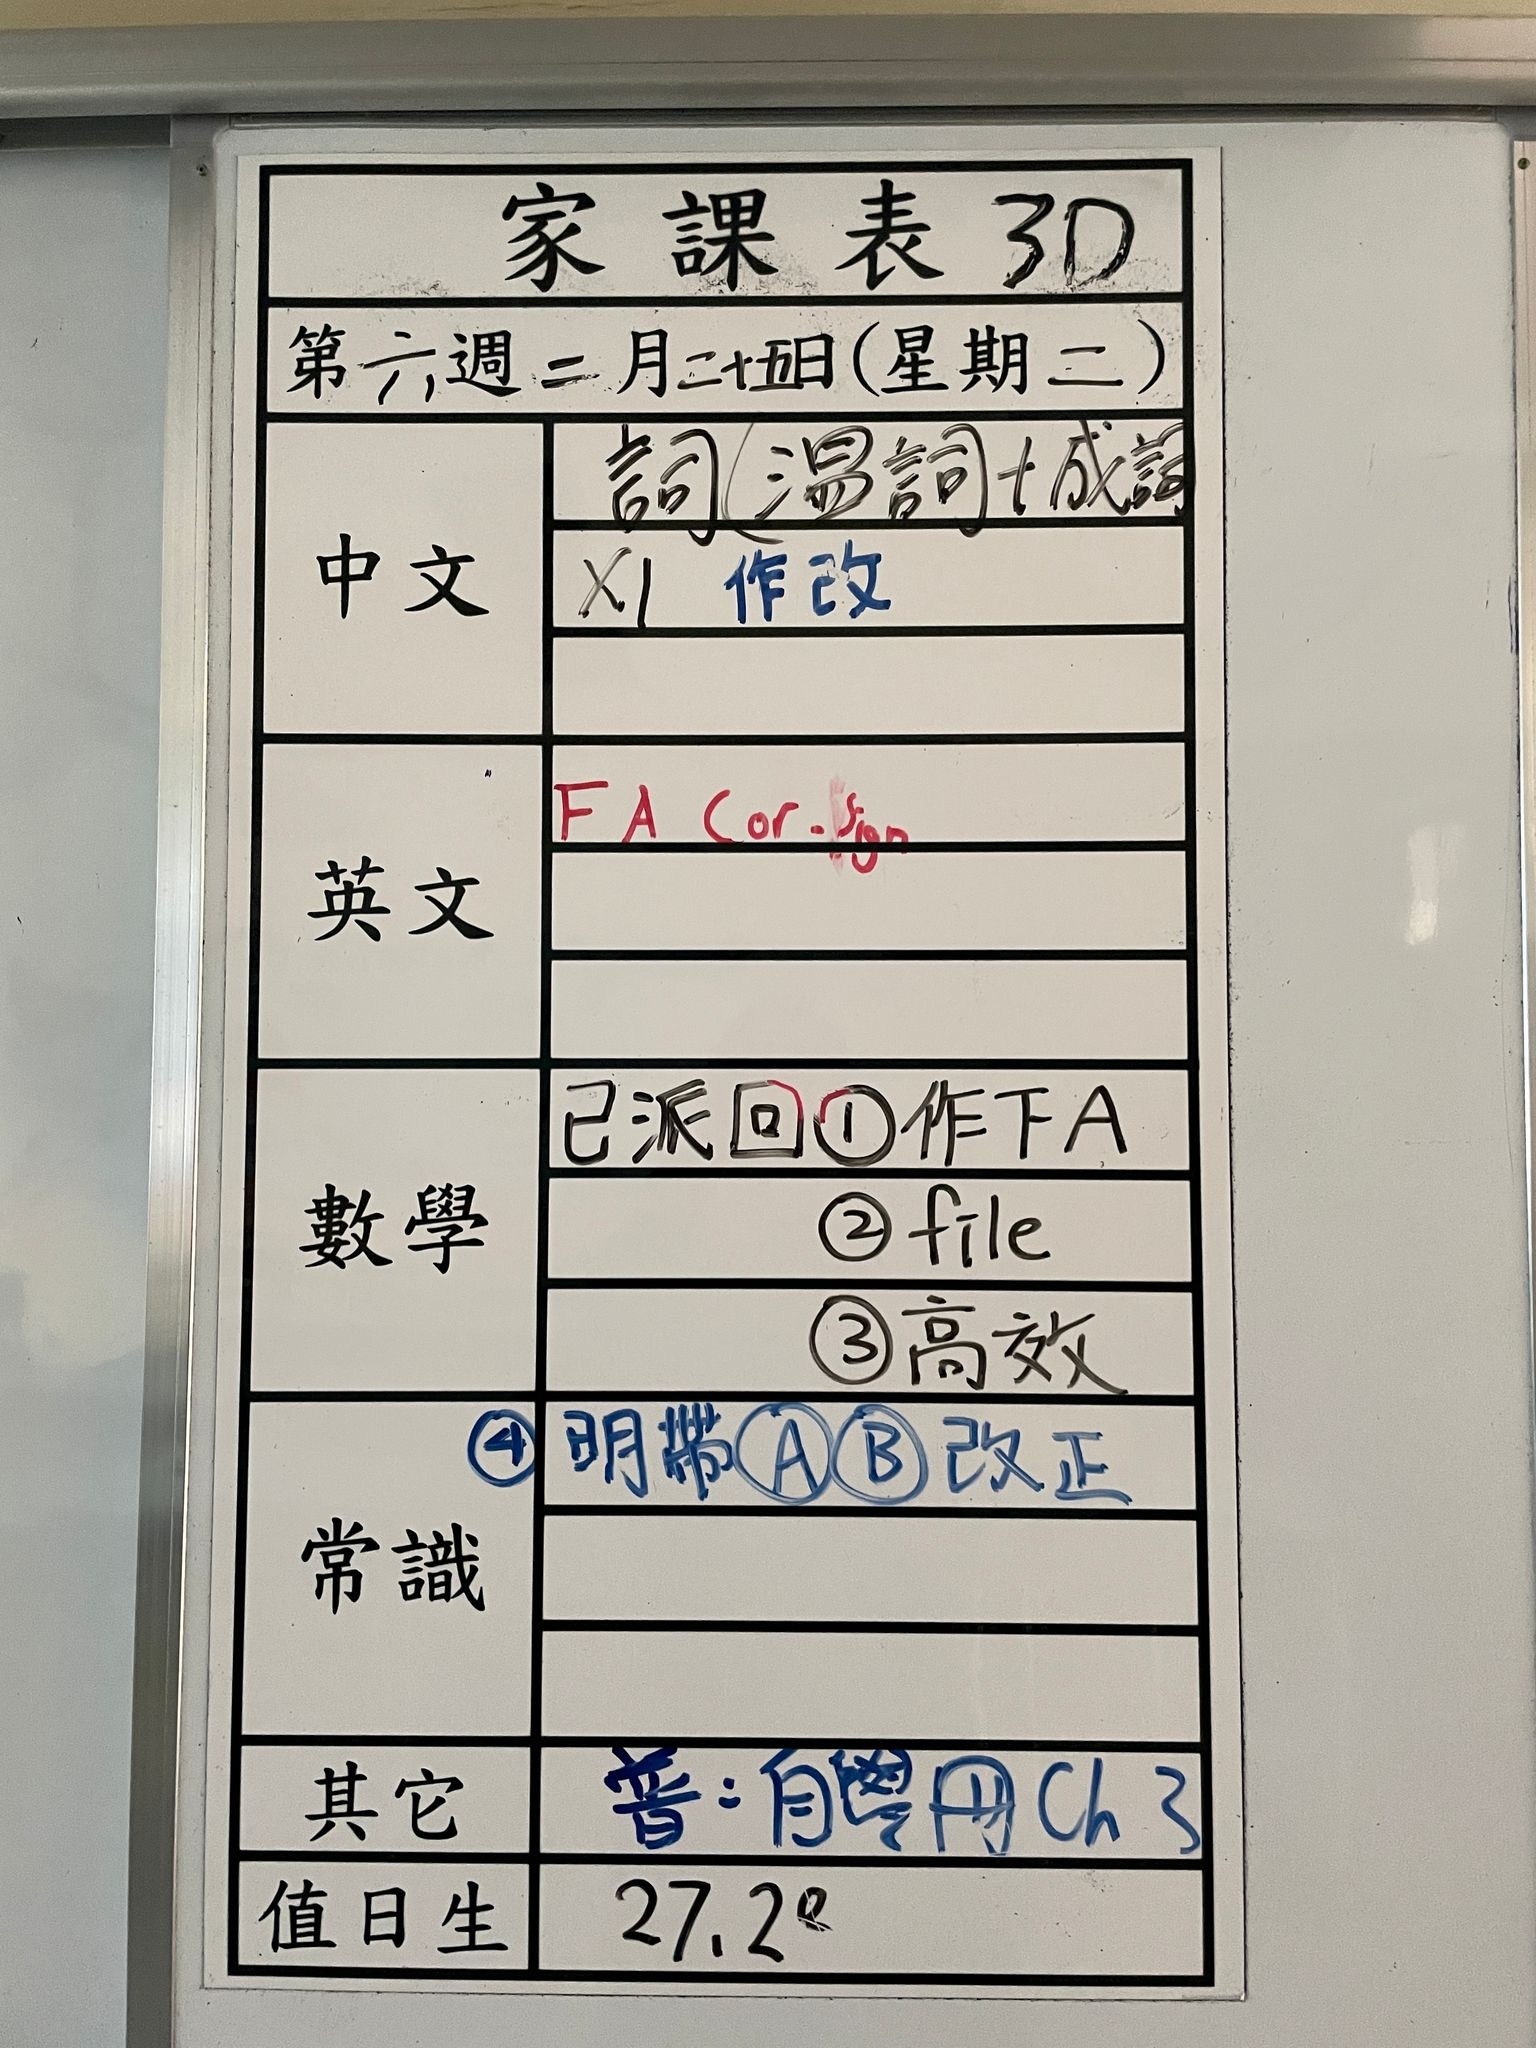 家課表 3D
第六週二月二十五日(星期二)
中文
詞(温詞+成語
X1 作改
英文
FA Cor. Sign
數學
已派回①作下A
②file
③高效
常識
④明帶ⒶⒷ改正
其它
普:自學冊Ch 3
值日生
27.2